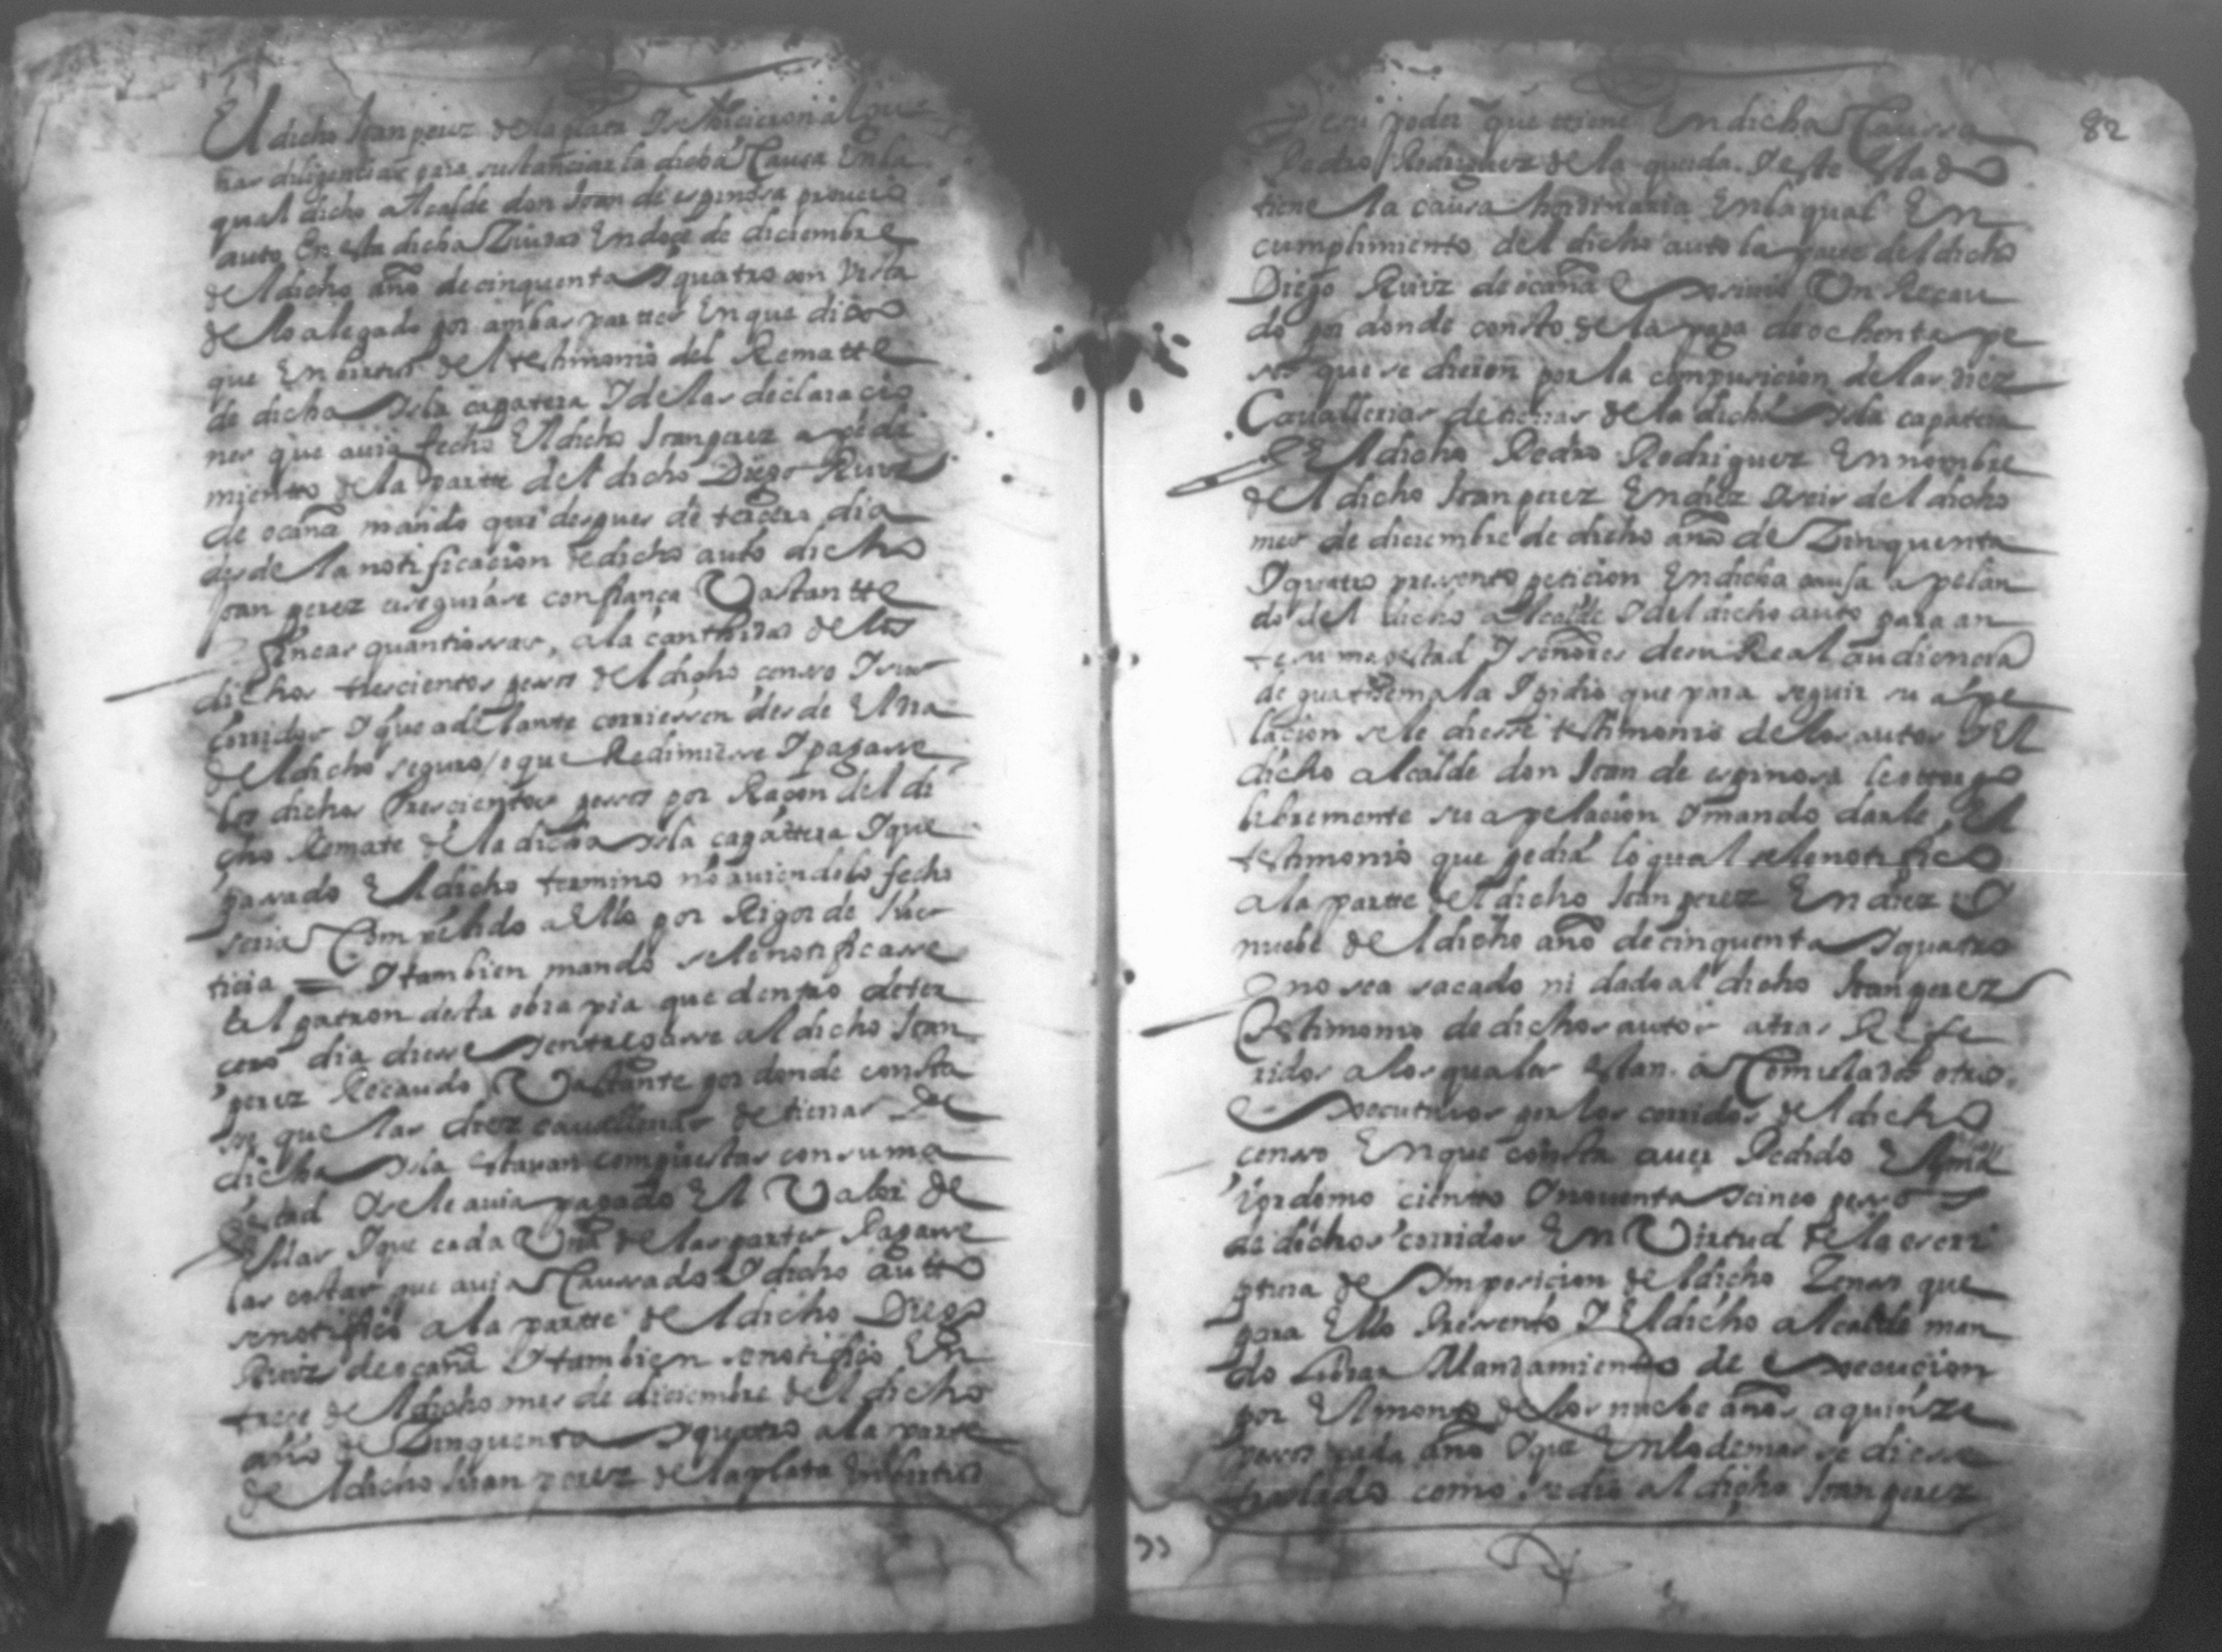 El dicho Joan perez de la plata Y se hicieron algu
nas diligencias para sustanciar la dicha Caussa En la
qual dicho alcalde don Joan de espinosa proueio
auto En esta dicha Ziudad En doce de diciembre
del dicho año de cinquenta Y quatro con Vista
de lo alegado por ambas parttes En que dixo
que En birtud del testimonio del Rematte
de dicha Ysla capatera Y de las declaracio
nes que auia fecho El dicho Joan perez a pedi
miento de la partte del dicho Diego Ruiz
de ocaña mando que despues de tercero dia
desde la notificacion de dicho auto dicho
Joan perez asegurase con fiança Vastantte
fincas quantiossas, a la canthidad de los
dichos trescientos pesos del dicho censo Y sus
corridos Y que adelante corriessen desde El dia
del dicho seguro / o que Redimiesse Y pagasse
los dichos trescientos pesos por Raçon del di
cho Remate de la dicha Ysla capattera Y que
passado El dicho termino no auiendolo fecho
seria Compelido a Ello por Rigor de Jus
ticia = Y tambien mando se le notificasse
al patron desta obra pia que dentro de ter
cero dia diesse Y entregasse al dicho Joan
perez Recaudo Vastante por donde consta
se que las diez cauallerias de tierras de
dicha Ysla estauan compuestas con su ma
gestad Y se le auia pagado El Valor de
Ellas Y que cada Una de las partes Pagasse
las costas que auia Caussado Y dicho autto
se notifico a la partte del dicho Diego
Ruiz de ocaña Y tambien se notifico En
trece del dicho mes de diciembre del dicho
año de Zinquenta Y quatro a la parte
del dicho Juan perez de la plata En birtud
82
de su poder que ttiene En dicha Caussa
Pedro Rodriguez de la queda. Y este Estado
tiene la causa hordinaria En la qual En
cumplimiento del dicho auto la parte del dicho
Diego Ruiz de ocaña Exsiuio Un Recau
do por donde consto de la paga de ochenta pe
sos que se dieron por la composicion de las diez
Cauallerias de tierras de la dicha Ysla capatera
Y El dicho Pedro Rodriguez En nombre
del dicho Joan perez En diez Y seis del dicho
mes de diciembre de dicho año de Zinquenta
Y quatro presento peticion En dicha causa apelan
do del dicho alcalde Y del dicho auto para an
te su magestad Y señores de su Real audiencia
de guathemala Y pidio que para seguir su ape
lacion se le diesse testimonio de los autos Y El
dicho alcalde don Joan de espinosa le ottorgo
libremente su apelacion Y mando darle El
testimonio que pedia lo qual se le notifico
a la partte del dicho Joan perez En diez Y
nuebe del dicho año de cinquenta Y quatro
Y no sea sacado ni dado al dicho Joan perez
Testimonio de dichos autos atras Refe
ridos a los quales estan aComulados otros
Exsecutiuos por los corridos del dicho
censo En que consta auer Pedido El ma
iordomo ciento Y nouenta Y cinco pesos
de dichos corridos En Virtud de la escri
ptura de Ymposicion del dicho Zenso que
para Ello Presento Y El dicho alcalde man
do Librar Mandamiento de Exsecucion
por El monto de los nuebe años a quinze
pesos cada año Y que En lo demas se diesse
traslado como se dio al dicho Joan perez